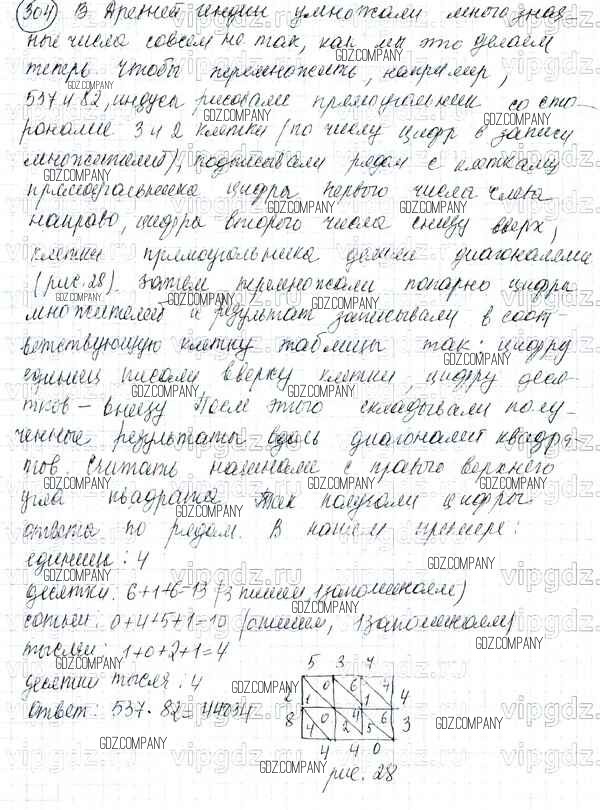 304 В Древней Индии умножали многознач-
ные числа совсем не так, как мы это делаем
теперь. Чтобы перемножить, например,
537 и 82, индусы рисовали прямоугольник со сто-
ронами 3 и 2 клетки (по числу цифр в записи
множителей), подписывали рядом с клетками
прямоугольника цифры первого числа слева
направо, цифры второго числа снизу вверх,
клетки прямоугольника делили диагоналями
(рис. 28). Затем перемножали попарно цифры
множителей и результат записывали в соот-
ветствующую клетку таблицы так: цифру
единиц писали вверху клетки, цифру деся-
тков – внизу После этого складывали полу-
ченные результаты вдоль диагоналей квадра-
тов. Считать начинали с правого верхнего
угла квадрата Так получали цифры
ответа по рядам. В нашем примере:
единицы: 4
десятки: 6+1+6=13 (3 пишем 1 запоминаем)
сотни: 0+4+5+1=10 (0 пишем, 1 запоминаем)
тысячи: 1+0+2+1=4
десятки тысяч: 4
ответ: 537 · 82 = 44034
5 3 7
2 1 0 6 1 4 4
8 4 0 2 4 5 6 3
4 4 0
рис. 28
GDZ.COMPANY
vipgdz.ru